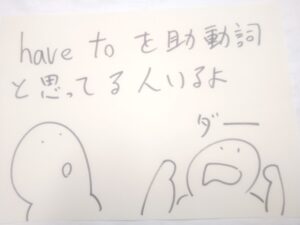 have to を助動詞
と思ってる人いるよ
ダー